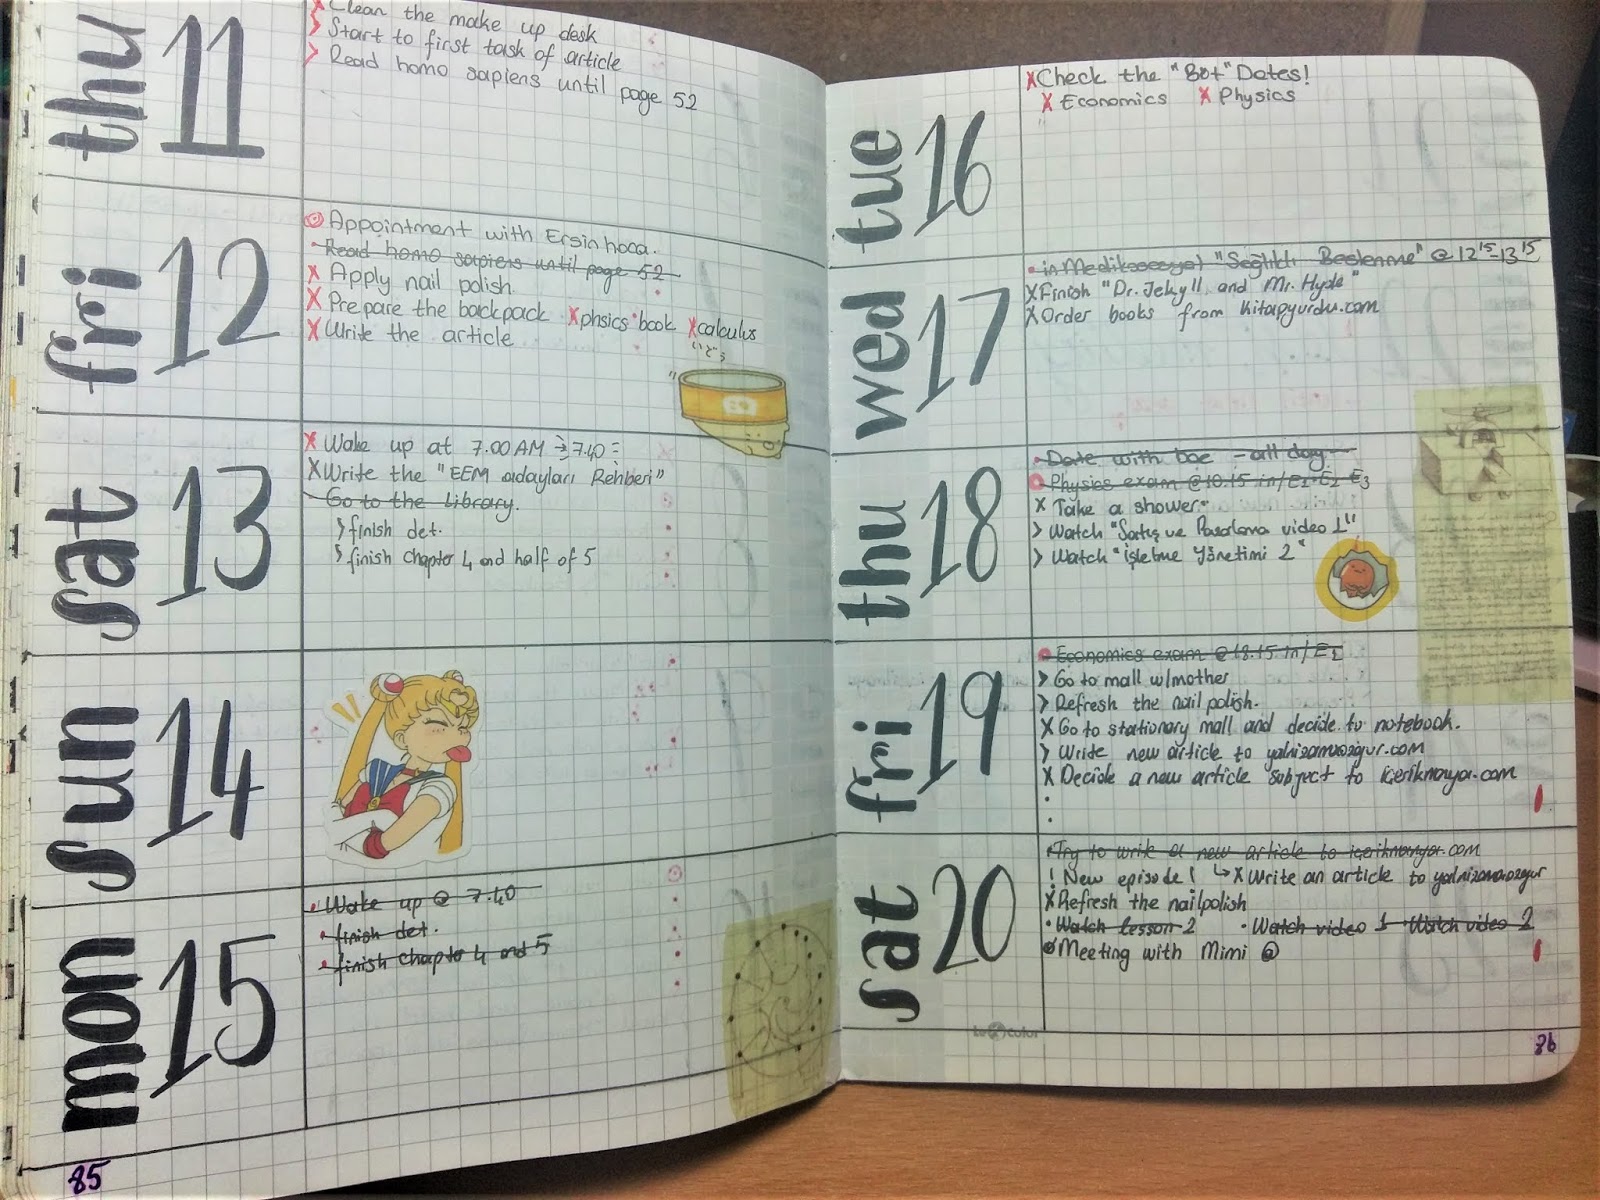 thu 11
x Clean the make up desk
> Start to first task of article
> Read homo sapiens until page 52
fri 12
Appointment with Ersin hoca.
• Read homo sapiens until page 52
x Apply nail polish.
x Prepare the backpack x phsics book x calculus
x Write the article
sat 13
x Wake up at 7.00 AM → 7.40
x Write the "EEM adayları Rehberi"
- Go to the library.
> finish det.
> finish chapto 4 and half of 5
sun 14
mon 15
• Wake up @ 7.40
• finish det.
• finish chapto 4 and 5
85
tue 16
x Check the "Bot" Dates!
x Economics x Physics
wed 17
• in Medikososyal "Sağlıklı Beslenme" @ 12 15-13 15
x Finish "Dr. Jekyll and Mr. Hyde"
x Order books from kitapyurdu.com
thu 18
• Date with bae - all day
Physics exam @ 10.15 in / E1 E2 E3
x Take a shower
> Watch "Satış ve Pazarlama video 1"
> Watch "İşletme Yönetimi 2"
fri 19
Economics exam @ 18.15 in / E1
> Go to mall w/mother
> Refresh the nail polish.
x Go to stationary mall and decide to notebook.
> Write new article to yalnizamaozgur.com
x Decide a new article subject to icerikmanya.com
sat 20
• Try to write a new article to icerikmanya.com
! New episode! ↳ x Write an article to yalnizamaozgur
x Refresh the nailpolish
• Watch lesson 2 • Watch video 1 • Watch video 2
Meeting with Mimi @
color
86